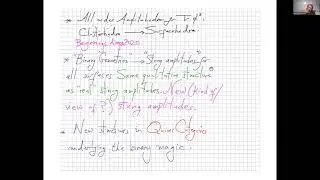 * All order Amplitudes for Tr φ³.
Clusterhedra → Surfacehedra
Beginning
* "Binary Geometries" → "String amplitudes" for
all surfaces. Same qualitative structure
as "real" string amplitudes. New (Kind of/
view of?) string amplitudes.
* New structures in Quiver
underlying the binary magics.